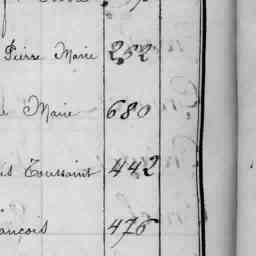 Pierre Marie 252
Marie 680
Toussaint 442
ançois 476